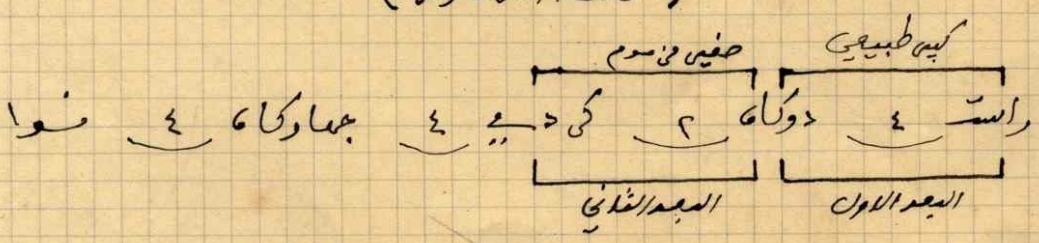 كبير طبيعي
صغير مزموم
راست ٤ دوكاه ٢ كي دسي ٤ جهاركاه ٤ نوا
البعد الاول
البعد الثاني